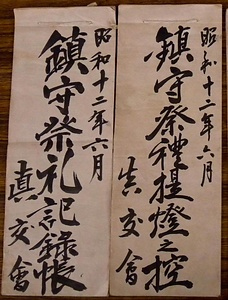 昭和十二年六月
鎮守祭禮提燈之控
真交會
昭和十二年六月
鎮守祭礼記録帳
真交會